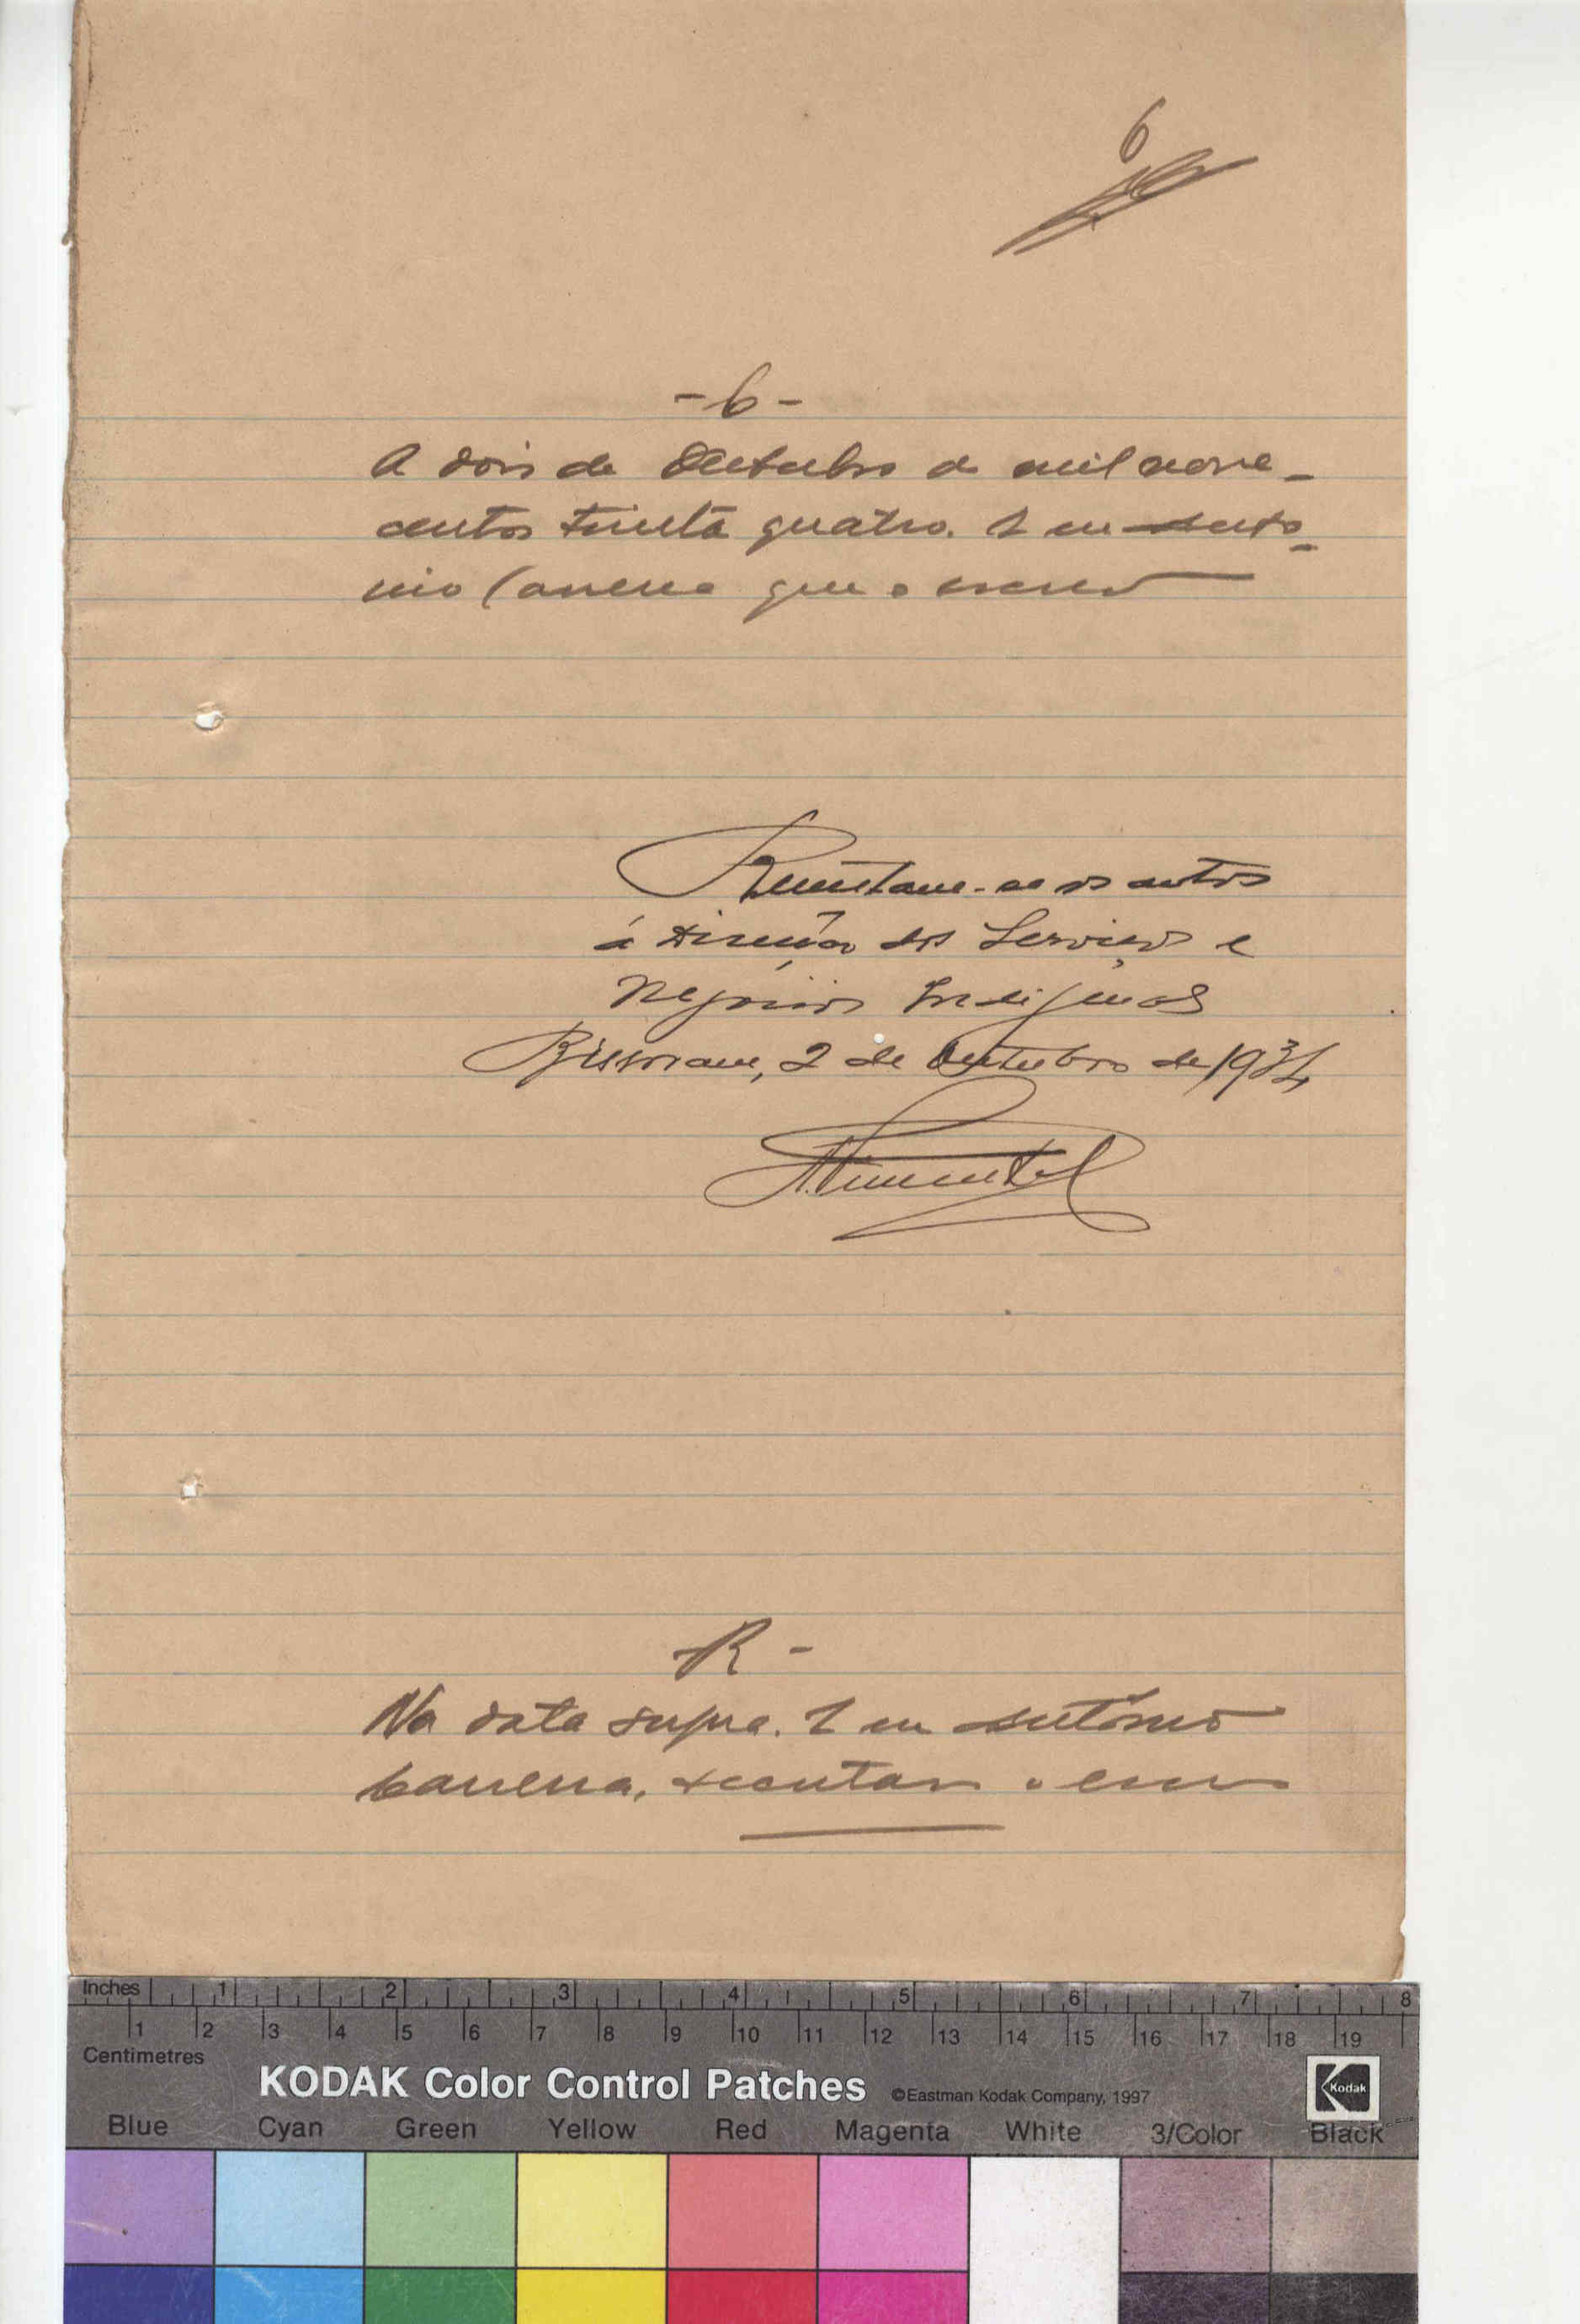 6
- 6 -
A dois de Outubro de mil nove-
centos trinta quatro. E eu Anto-
nio Carreira que o escrevi
Remetam-se os autos
á Direcção dos Serviços e
Negócios Indígenas
Bissoram, 2 de Outubro de 1934
A. Pimentel
R -
Na data supra. E eu António
Carreira, o escrevi
Inches 1 2 3 4 5 6 7 8
1 2 3 4 5 6 7 8 9 10 11 12 13 14 15 16 17 18 19
Centimetres
KODAK Color Control Patches ©Eastman Kodak Company, 1997 Kodak
Blue Cyan Green Yellow Red Magenta White 3/Color Black